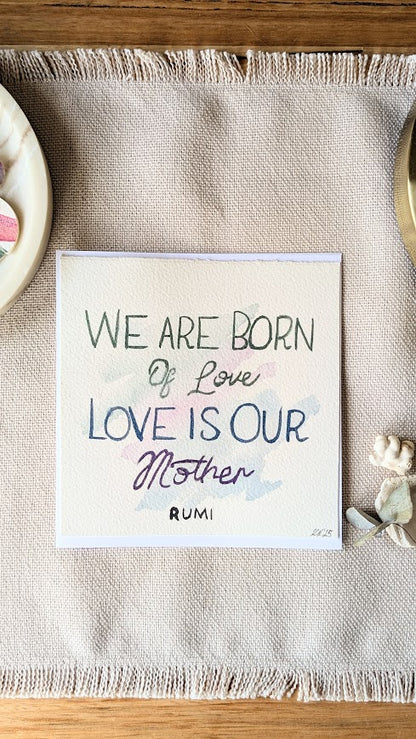 WE ARE BORN
Of Love
LOVE IS OUR
Mother
RUMI